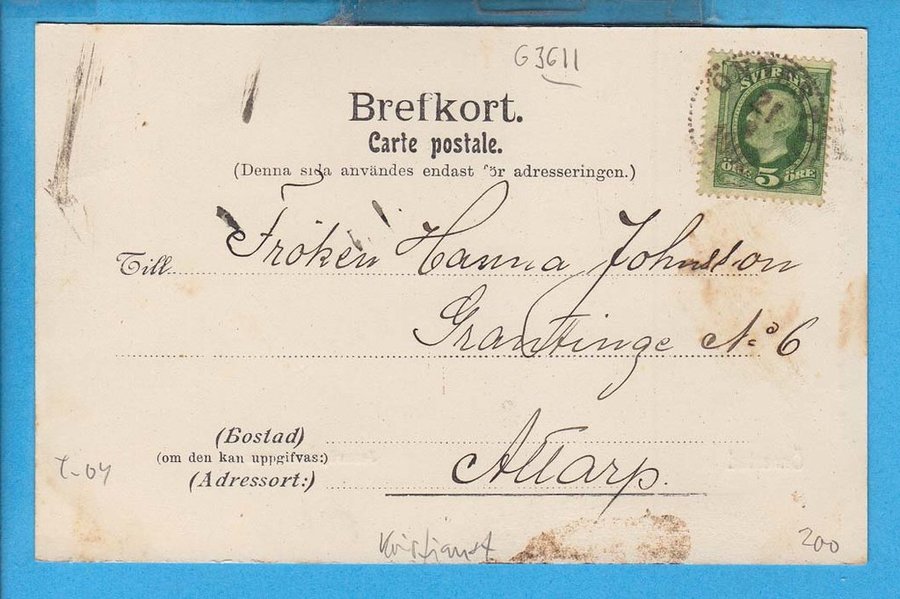 G3611
Brefkort.
Carte postale.
(Denna sida användes endast för adresseringen.)
SVERIGE
ÖRE 5 ÖRE
21
Till Fröken Hanna Johnsson
Granttinge No 6
(Bostad)
(om den kan uppgifvas:)
(Adressort:) Attarp.
-04
Kristianst
200